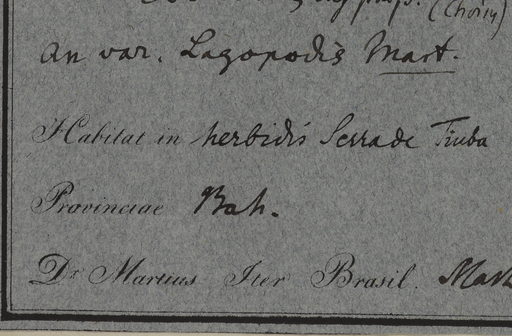 (Choisy)
An var. Lagopodis Mart.
Habitat in herbidis Serra de Tiuba
Provinciae Bah.
Dr. Martius Iter Brasil. Mart